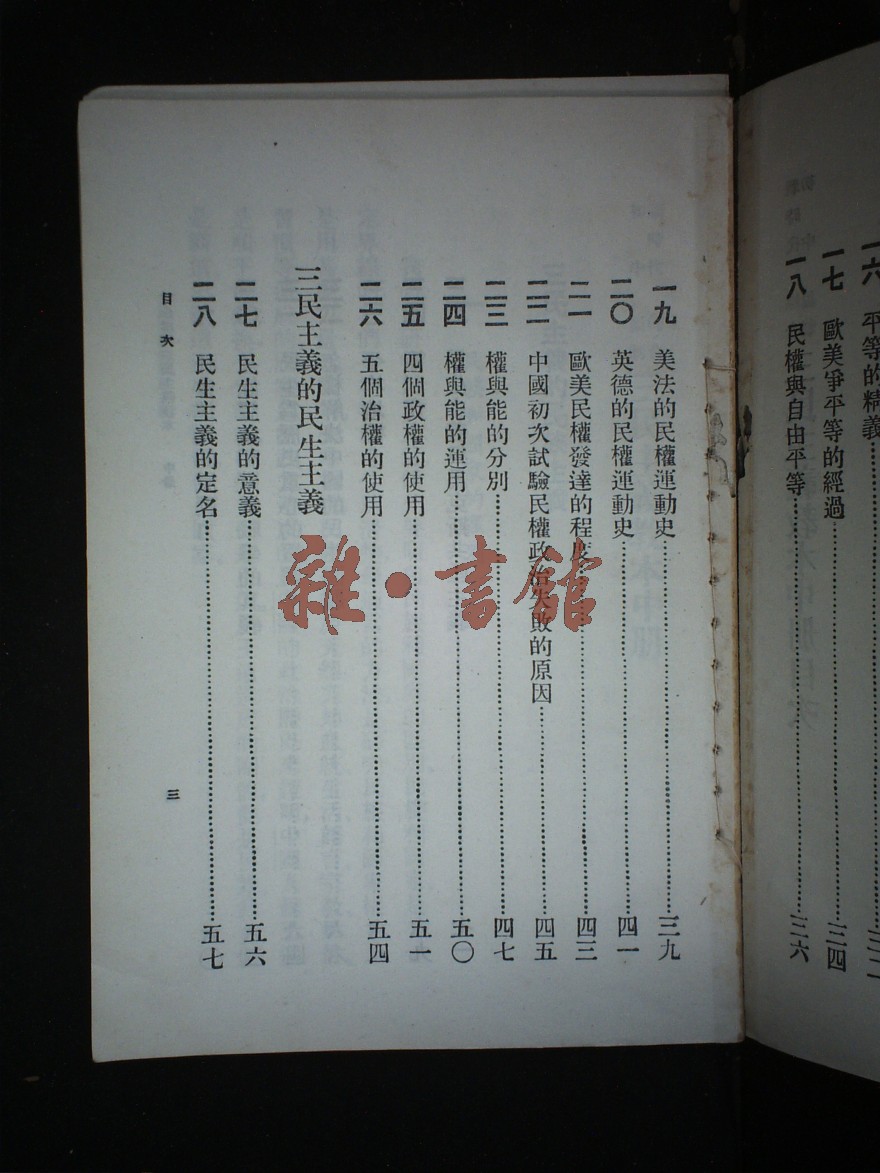 一六 平等的精義
一七 歐美爭平等的經過 三四
一八 民權與自由平等 三六
一九 美法的民權運動史 三九
二〇 英德的民權運動史 四一
二一 歐美民權發達的程度 四三
二二 中國初次試驗民權政治失敗的原因 四五
二三 權與能的分別 四七
二四 權與能的運用 五〇
二五 四個政權的使用 五一
二六 五個治權的使用 五四
三民主義的民生主義
二七 民生主義的意義 五六
二八 民生主義的定名 五七
目次
三
雜·書館